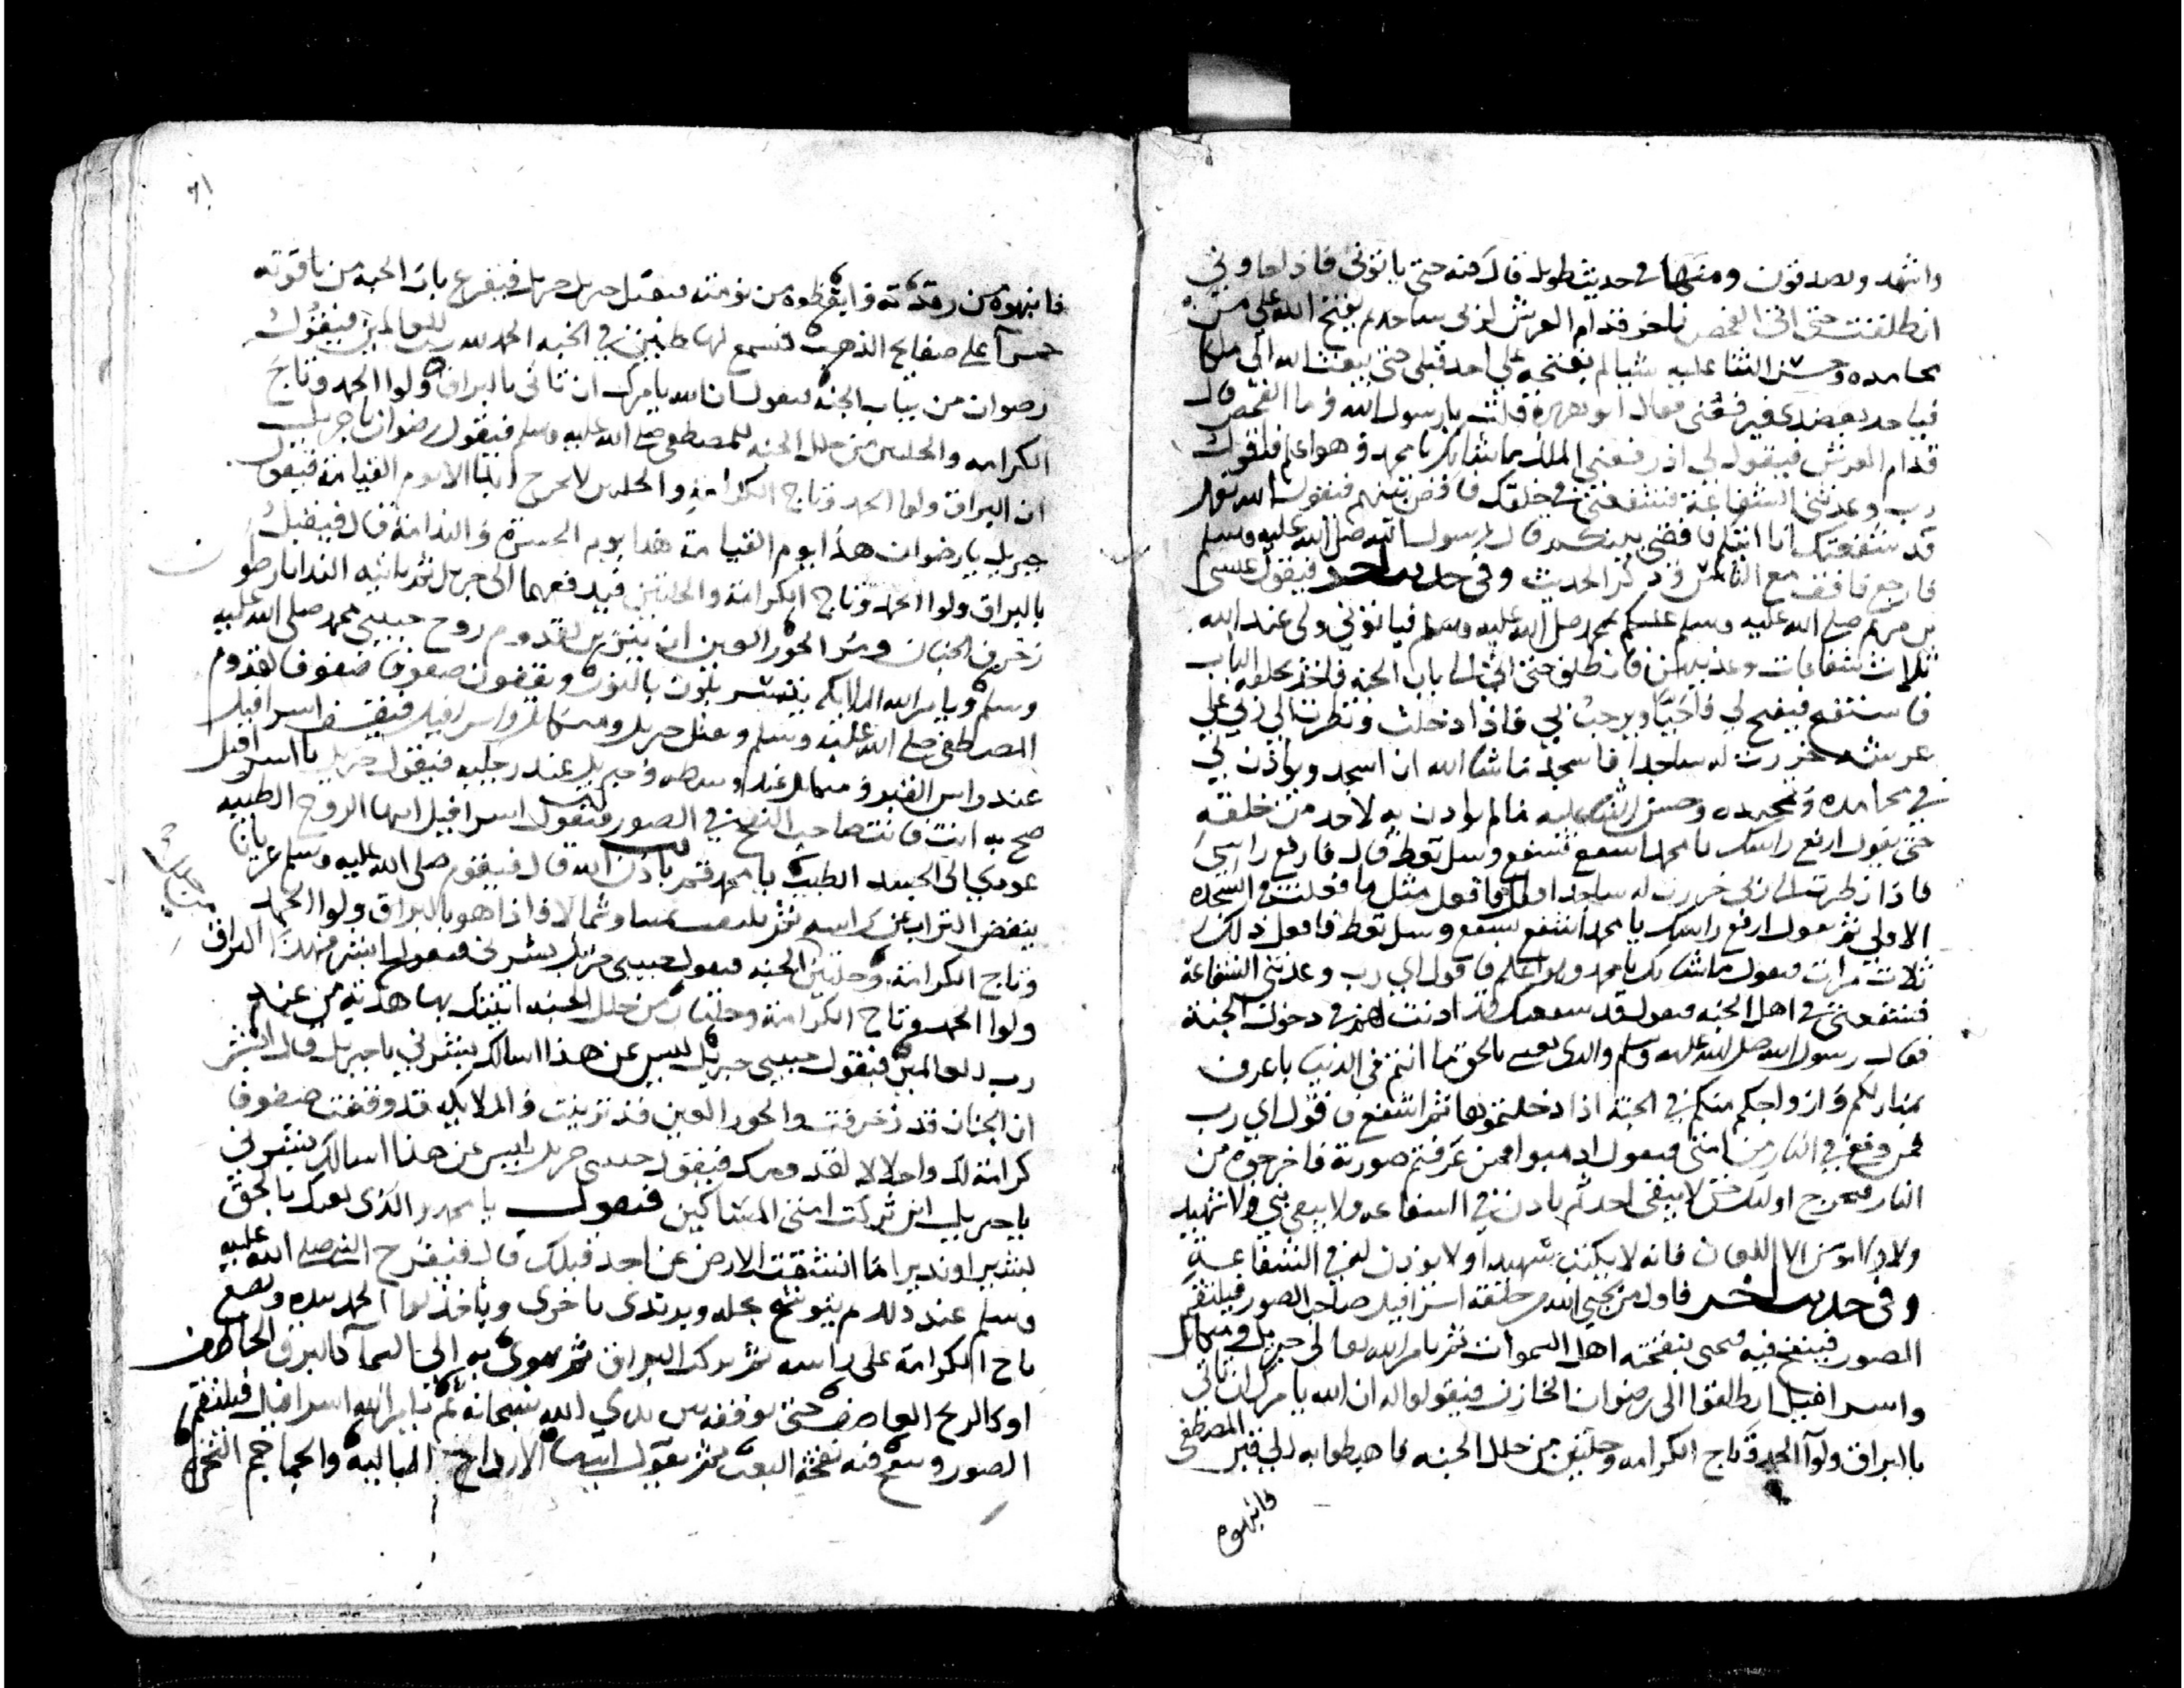 واشهد ويصدقون ومنها في حديث طويل قال فيه حتى ياتوني فاذا جاوني
انطلقت حتى اتى الفحص فاخر قدام العرش لربي ساجدا ثم يفتح الله علي من
محامده وحسن الثنا عليه شيا لم يفتحه على احد قبلي حتى يبعث الله الي ملكا
فياخذ بعضدي فيرفعني فقال ابو هريرة قلت يا رسول الله وما الفحص قال
قدام العرش فيقول لي اذ رفعني الملك ما شانك يا محمد وهو اعلم فاقول
رب وعدتني الشفاعة فشفعني في خلقك فاقض بينهم فيقول الله تعالى
قد شفعتك انا اتيكم فاقضي بينكم قال رسول الله صلى الله عليه وسلم
فارجع فاقف مع الناس وذكر الحديث وفي حديث اخر فيقول عيسى
بن مريم صلى الله عليه وسلم عليكم بمحمد صلى الله عليه وسلم فياتوني ولي عند الله
ثلاث شفاعات وعدنيهن فانطلق حتى اتي الى باب الجنه فاخذ بحلقه الباب
فاستفتح فيفتح لي فاحيا ويرحب بي فاذا دخلت ونظرت الى ربي على
عرشه خررت له ساجدا فاسجد ما شا الله ان اسجد وياذن لي
في محامده وتمجيده وحسن الثنا عليه فالم ياذن به لاحد من خلقه
حتى يقول ارفع راسك يا محمد اشفع تشفع وسل تعط قال فارفع راسي
فاذا نظرت الى ربي خررت له ساجدا فاقول مثل ما فعلت في السجده
الاولى ثم يقول ارفع راسك يا محمد اشفع تشفع وسل تعط فافعل ذلك
ثلاث مرات فيقول ما شانك يا محمد وهو اعلم فاقول اي رب وعدتني الشفاعة
فشفعني في اهل الجنه فيقول قد شفعتك قد اذنت لهم في دخول الجنة
فقال رسول الله صلى الله عليه وسلم والذي بعثني بالحق ما انتم في الدنيا باعرف
بمنازلكم وازواجكم منكم في الجنة اذا دخلتموها ثم اشفع فاقول اي رب
من وقع في النار من امتي فيقول اذهبوا فمن عرفتم صورته فاخرجوه من
النار فيخرج اوليك حتى لا يبقى احد ثم ياذن في الشفاعه ولا يبقى نبي ولا شهيد
ولا مومن الا اللعان فانه لا يكتب شهيدا ولا يوذن له في الشفاعة
وفي حديث اخر فاول من يحيي الله من خلقه اسرافيل صاحب الصور فيلتقم
الصور فينفخ فيه فيحيي بنفخته اهل السموات ثم يامر الله تعالى جبريل وميكائل
واسرافيل انطلقوا الى رضوان الخازن فيقولوا له ان الله يامرك ان تاتي
بالبراق ولوآ الحمد وتاج الكرامه وحلتين من حلل الجنه فاهبطوا به الى قبر المصطفى
فانبهوه
٦١
فانبهوه من رقدته وايقظوه من نومته فيقبل جبريل فيقرع باب الجنه من ياقوته
حمرآ على صفايح الذهب فتسمع لها طنين في الجنه الحمد لله رب العالمين فيقول
رضوان من بباب الجنه فيقول ان الله يامرك ان تاتي بالبراق ولوا الحمد وتاج
الكرامه والحلتين من حلل الجنه للمصطفى صلى الله عليه وسلم فيقول رضوان يا جبريل
ان البراق ولوا الحمد وتاج الكرامة والحلتين لا تخرج الا يوم القيامة فيقول
جبريل يا رضوان هذا يوم القيامة هذا يوم الحسرة والندامة قال فيقبل
بالبراق ولوا الحمد وتاج الكرامة والحلتين فيدفعهما الى جبريل ثم ياتيه الندا يا رضوان
زخرف الجنان ومر الحور العين ان يتزين لقدوم روح حبيبي محمد صلى الله عليه
وسلم ويامر الله الملايكه يتسربلون بالنور ويقفون صفوفا صفوفا لقدوم
المصطفى صلى الله عليه وسلم ومثل جبريل وميكائل واسرافيل فيقف اسرافيل
عند راس القبر وميكائل عند وسطه وجبريل عند رجليه فيقول جبريل يا اسرافيل
صح به انت فانت صاحب النفخ في الصور فيقول اسرافيل ايها الروح الطيبه
عودي الى الجسد الطيب يا محمد قم باذن الله قال فيقوم صلى الله عليه وسلم عريانا
ينفض التراب عن راسه ثم يلتفت يمينا وشمالا فاذا هو بالبراق ولوا الحمد
وتاج الكرامة وحلتين الجنه فيقول حبيبي جبريل بشرني فيقول ابشر فهذا البراق
ولوا الحمد وتاج الكرامة وحلتان من حلل الجنه اتيتك بها هدية من عند
رب العالمين فيقول حبيبي جبريل ليس عن هذا اسالك بشرني يا جبريل قال ابشر
ان الجنان قد زخرفت والحور العين قد تزينت والملايكه قد وقفت صفوفا
كرامة لك واجلالا لقدومك فيقول حبيبي جبريل ليس عن هذا اسالك بشرني
يا جبريل اين تركت امتي المساكين فيقول يا محمد والذي بعثك بالحق
بشيرا ونذيرا ما انشقت الارض عن احد قبلك قال فيفرح النبي صلى الله عليه
وسلم عند ذلك ثم يتوشح بحله ويرتدي باخرى وياخذ لوا الحمد بيده ويضع
تاج الكرامة على راسه ثم يركب البراق ثم يهوي به الى السمآ كالبرق الخاطف
او كالريح العاصف حتى يوقفه بين يدي الله سبحانه ثم يامر الله اسرافيل فيلتقم
الصور وينفخ فيه نفخة البعث ثم يقول ايتها الارواح البالية والجماجم النخرة